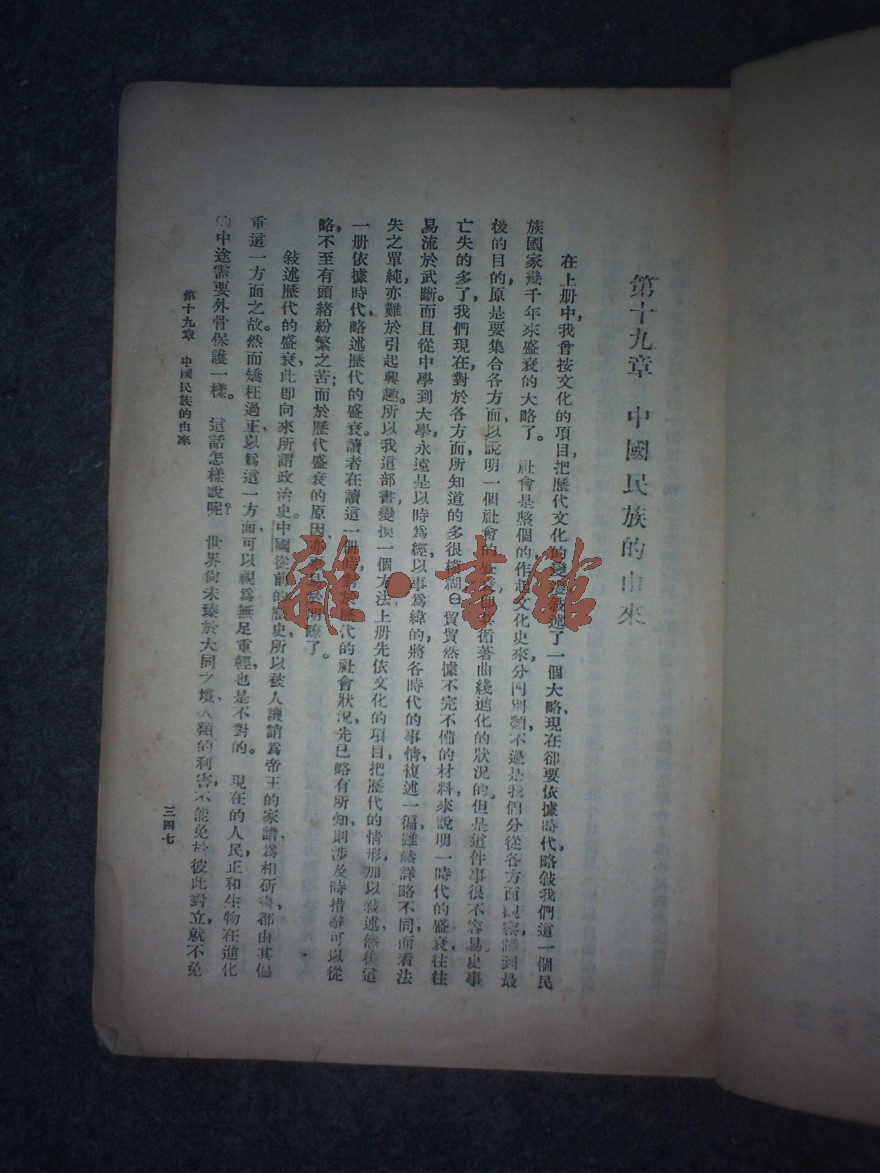 第十九章 中國民族的由來
在上册中,我曾按文化的項目,把歷代文化的變遷,敍述了一個大略,現在卻要依據時代,略敍我們這一個民
族國家幾千年來盛衰的大略了。社會是整個的,作起文化史來,分門別類,不過是我們分從各方面觀察,講到最
後的目的,原是要集合各方面,以說明一個社會的 循著曲綫進化的狀況的。但是這件事很不容易。史事
亡失的多了,我們現在,對於各方面,所知道的多很模糊㊀貿貿然據不完不備的材料,來說明一時代的盛衰,往往
易流於武斷。而且從中學到大學,永遠是以時爲經,以事爲緯的,將各時代的事情,複述一徧,雖然詳略不同,而看法
失之單純,亦難於引起興趣。所以我這部書,變換一個方法,上册先依文化的項目,把歷代的情形,加以敍述,然後這
一册依據時代,略述歷代的盛衰。讀者在讀這一册 對於歷代的社會狀況,先已略有所知,則涉及時措辭可以從
略,不至有頭緒紛繁之苦;而於歷代盛衰的原因,亦 於明瞭了。
敍述歷代的盛衰,此即向來所謂政治史。中國從前的歷史,所以被人譏誚爲帝王的家譜,爲相斫書,都由其偏
重這一方面之故。然而矯枉過正,以爲這一方面,可以視爲無足重輕,也是不對的。現在的人民,正和生物在進化
中途需要外骨保護一樣。這話怎樣說呢?世界尚未臻於大同之境,人類的利害,不能免於彼此對立,就不免
第十九章 中國民族的由來
三四七
雜·書館